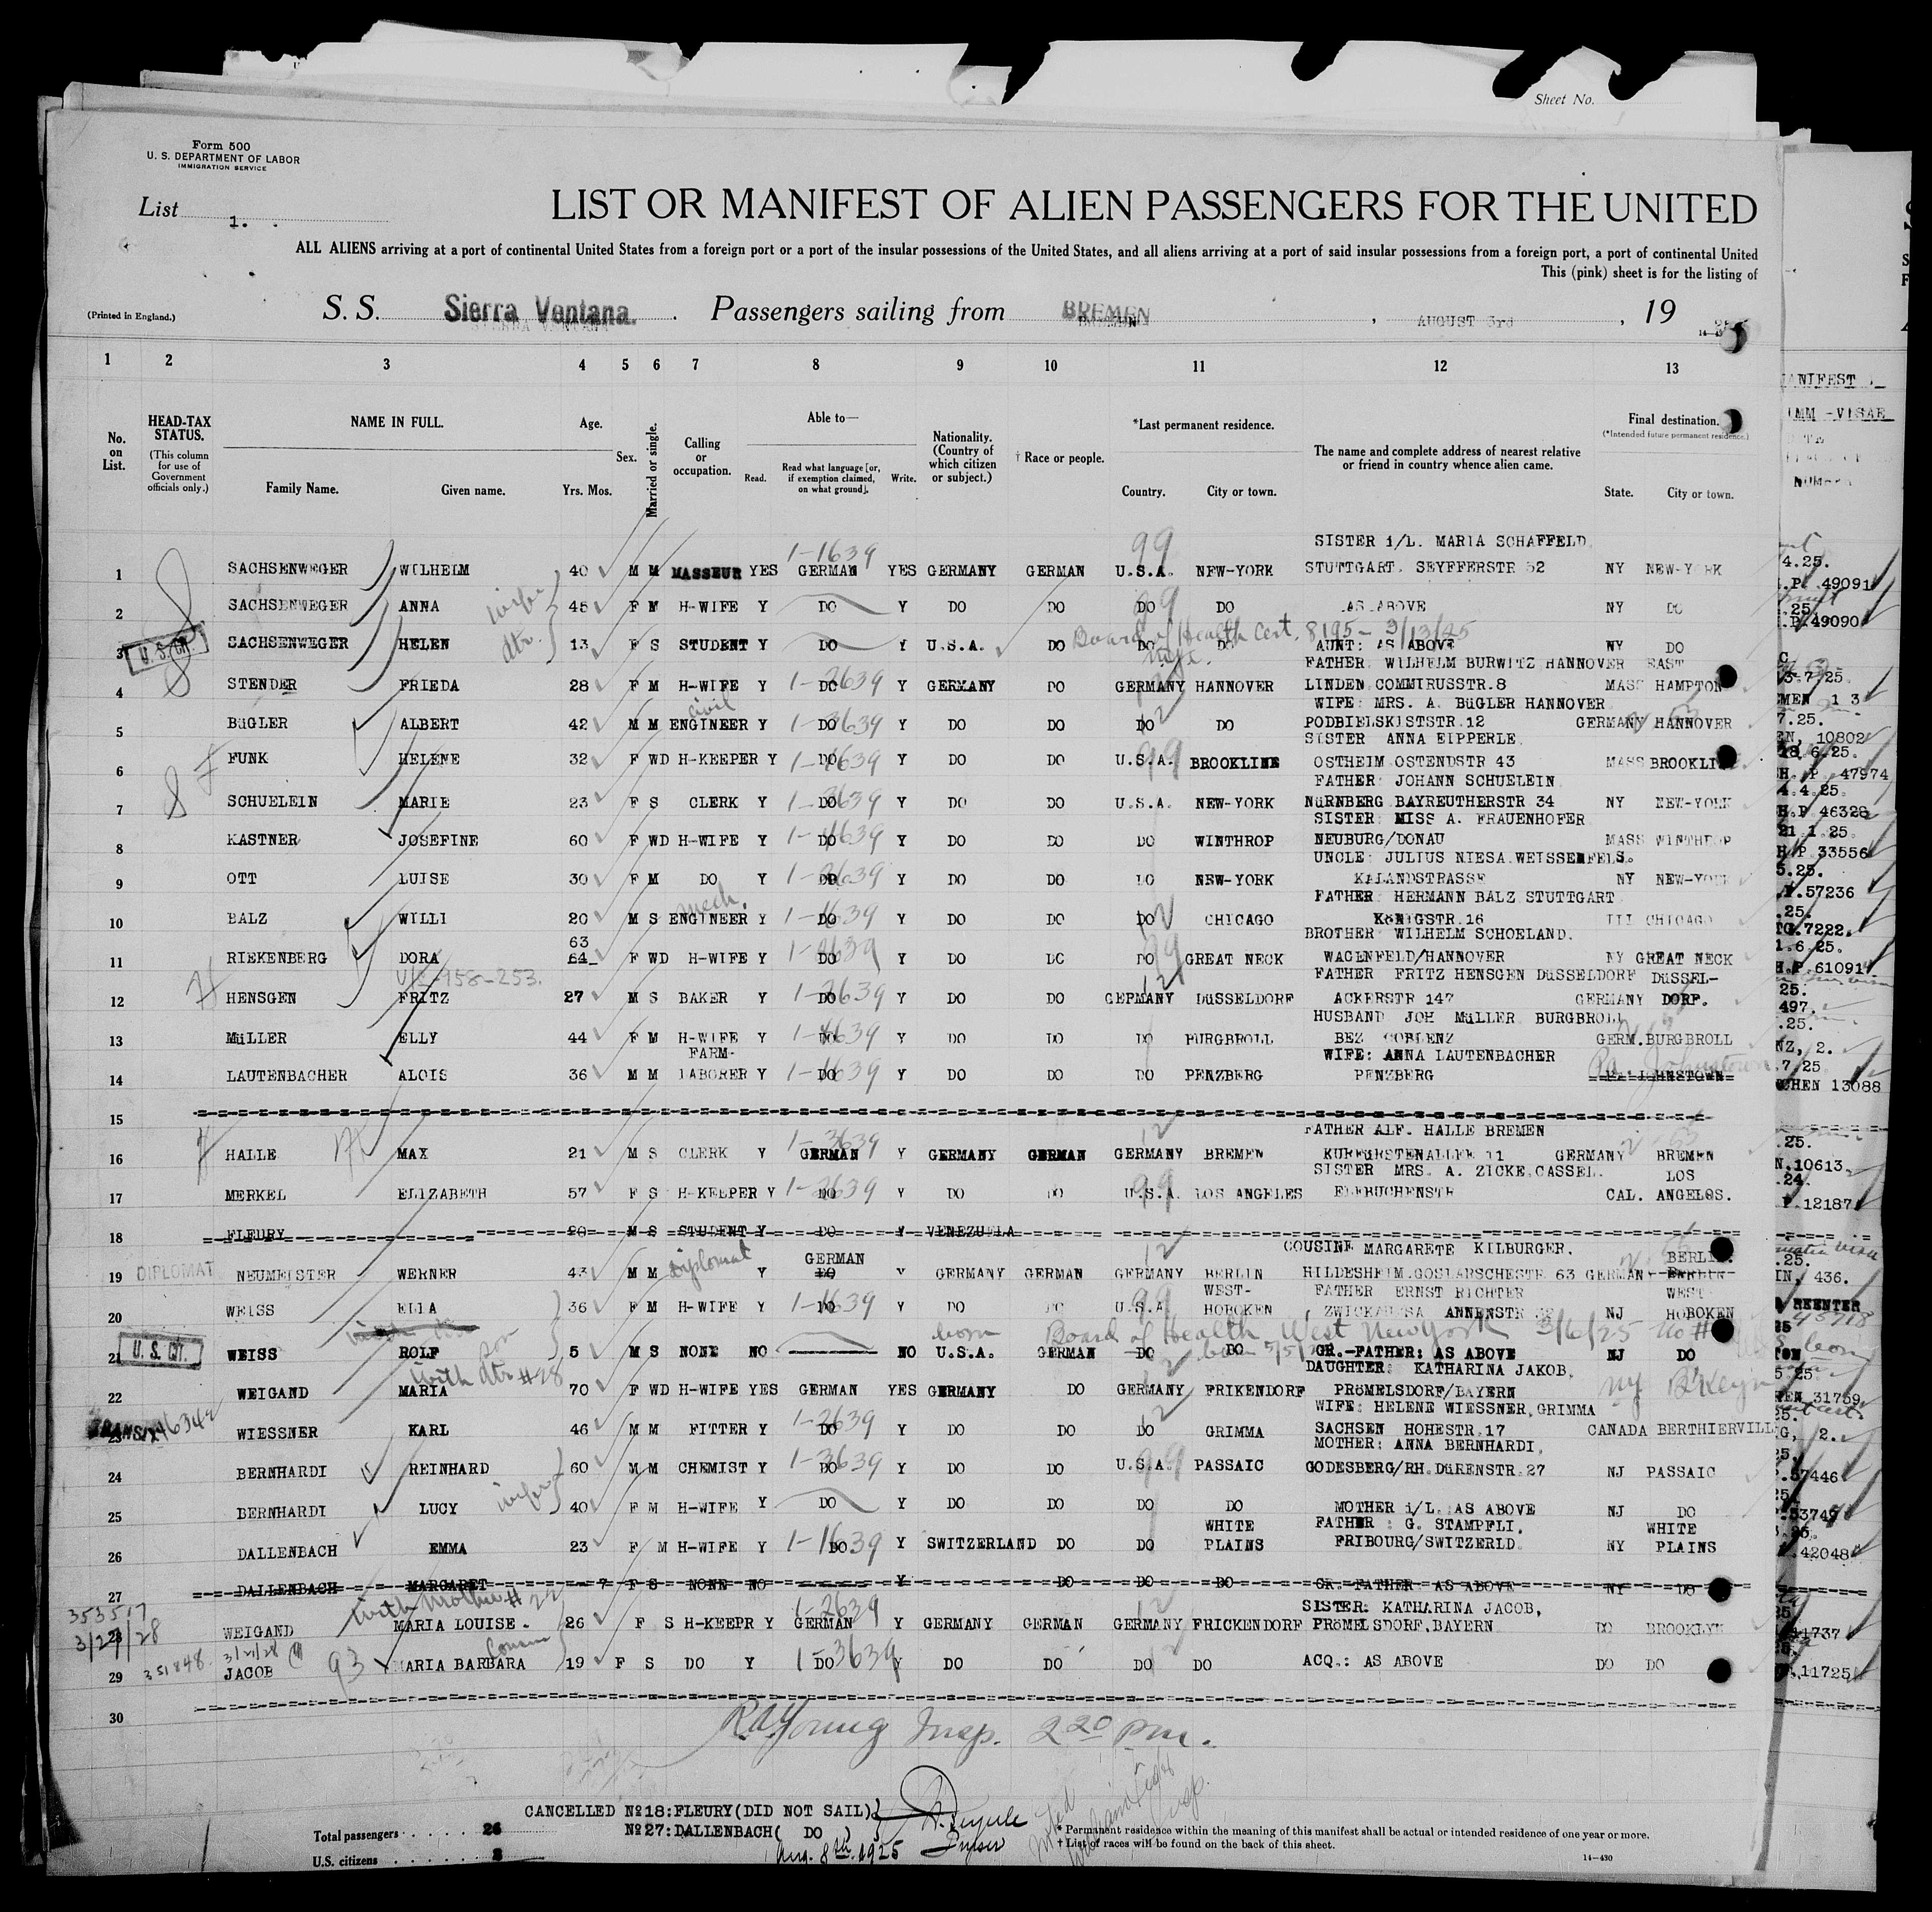 Sheet No.
Form 500
U. S. DEPARTMENT OF LABOR
IMMIGRATION SERVICE
List 1.
LIST OR MANIFEST OF ALIEN PASSENGERS FOR THE UNITED
ALL ALIENS arriving at a port of continental United States from a foreign port or a port of the insular possessions of the United States, and all aliens arriving at a port of said insular possessions from a foreign port, a port of continental United
This (pink) sheet is for the listing of
(Printed in England.)
S. S. Sierra Ventana. Passengers sailing from BREMEN, AUGUST 3rd, 19 25
1 2 3 4 5 6 7 8 9 10 11 12 13
No. on List.
HEAD-TAX STATUS.
(This column for use of Government officials only.)
NAME IN FULL.
Family Name. Given name.
Age.
Yrs. Mos.
Sex.
Married or single.
Calling or occupation.
Able to—
Read. Read what language [or, if exemption claimed, on what ground]. Write.
Nationality. (Country of which citizen or subject.)
† Race or people.
*Last permanent residence.
Country. City or town.
The name and complete address of nearest relative or friend in country whence alien came.
Final destination.
(*Intended future permanent residence.)
State. City or town.
SISTER i/L. MARIA SCHAFFELD
1 SACHSENWEGER WILHELM 40 M M MASSEUR YES GERMAN YES GERMANY GERMAN U.S.A. NEW-YORK STUTTGART. SEYFFERSTR 52 NY NEW-YORK
2 SACHSENWEGER ANNA wife 46 F M H-WIFE Y DO Y DO DO DO DO AS ABOVE NY DO
Board of Health Cert. 8195-
3 U. S. CIT. SACHSENWEGER HELEN dtr. 13 F S STUDENT Y DO Y U.S.A. DO DO DO AUNT: AS ABOVE NY DO
FATHER WILHELM BURWITZ HANNOVER EAST
4 STENDER FRIEDA 28 F M H-WIFE Y DO Y GERMANY DO GERMANY HANNOVER LINDEN COMMIRUSSTR.8 MASS HAMPTON
civil WIFE: MRS. A. BüGLER HANNOVER
5 BüGLER ALBERT 42 M M ENGINEER Y DO Y DO DO DO DO PODBIELSKISTSTR.12 GERMANY HANNOVER
SISTER ANNA EIPPERLE
6 FUNK HELENE 32 F WD H-KEEPER Y DO Y DO DO U.S.A. BROOKLINE OSTHEIM OSTENDSTR 43 MASS BROOKLINE
FATHER: JOHANN SCHUELEIN
7 SCHUELEIN MARIE 23 F S CLERK Y DO Y DO DO U.S.A. NEW-YORK NüRNBERG BAYREUTHERSTR 34 NY NEW-YORK
SISTER: MISS A. FRAUENHOFER
8 KASTNER JOSEFINE 60 F WD H-WIFE Y DO Y DO DO DO WINTHROP NEUBURG/DONAU MASS WINTHROP
UNCLE: JULIUS NIESA WEISSENFELS.
9 OTT LUISE 30 F M DO Y DO Y DO DO DO NEW-YORK KALANDSTRASSE NY NEW-YORK
mech. FATHER HERMANN BALZ STUTTGART
10 BALZ WILLI 20 M S ENGINEER Y DO Y DO DO DO CHICAGO KöNIGSTR.16 III CHICAGO
63 BROTHER WILHELM SCHOELAND.
11 RIEKENBERG DORA 64 F WD H-WIFE Y DO Y DO DO DO GREAT NECK WAGENFELD/HANNOVER NY GREAT NECK
FATHER FRITZ HENSGEN DüSSELDORF DüSSEL-
12 HENSGEN FRITZ 27 M S BAKER Y DO Y DO DO GERMANY DüSSELDORF ACKERSTR 147 GERMANY DORF.
HUSBAND JOH MüLLER BURGBROLL
13 MüLLER ELLY 44 F M H-WIFE Y DO Y DO DO DO BURGBROLL BEZ COBLENZ GERM.BURGBROLL
FARM- WIFE: ANNA LAUTENBACHER Pa Johnstown
14 LAUTENBACHER ALOIS 36 M M LABORER Y DO Y DO DO DO PENZBERG PENZBERG PA. JOHNSTOWN
15
FATHER ALF. HALLE BREMEN
16 HALLE MAX 21 M S CLERK Y GERMAN Y GERMANY GERMAN GERMANY BREMEN KURFüRSTENALLEE 11 GERMANY BREMEN
SISTER MRS. A. ZICKE CASSEL. LOS
17 MERKEL ELIZABETH 57 F S H-KEEPER Y DO Y DO DO U.S.A. LOS ANGELES ELFBUCHENSTR CAL. ANGELOS.
18 FLEURY 20 M S STUDENT Y DO Y VENEZUELA
Diplomat GERMAN COUSINE MARGARETE KILBURGER. BERLIN.
19 DIPLOMAT NEUMEISTER WERNER 43 M M Y DO Y GERMANY GERMAN GERMANY BERLIN HILDESHEIM.GOSLARSCHESTR 63 GERMANY BERLIN
WEST- FATHER ERNST RICHTER WEST-
20 WEISS ELLA 36 F M H-WIFE Y DO Y DO DO U.S.A. HOBOKEN ANNENSTR NJ HOBOKEN
born Board of Health, West New York 3/6/25 No #
21 U. S. CIT. WEISS ROLF son 5 M S NONE NO NO U.S.A. GERMAN DO DO GR.-FATHER: AS ABOVE NJ DO
with dtr #28 DAUGHTER: KATHARINA JAKOB,
22 WEIGAND MARIA 70 F WD H-WIFE YES GERMAN YES GERMANY DO GERMANY FRIKENDORF PRöMELSDORF/BAYERN NY B'klyn
WIFE: HELENE WIESSNER,GRIMMA
23 TRANSIT WIESSNER KARL 46 M M FITTER Y DO Y DO DO DO GRIMMA SACHSEN HOHESTR.17 CANADA BERTHIERVILL
MOTHER: ANNA BERNHARDI,
24 BERNHARDI REINHARD 60 M M CHEMIST Y DO Y DO DO U.S.A. PASSAIC GODESBERG/RH.DüRENSTR.27 NJ PASSAIC
25 BERNHARDI LUCY wife 40 F M H-WIFE Y DO Y DO DO DO DO MOTHER i/L. AS ABOVE NJ DO
WHITE FATHER : G. STAMPFLI, WHITE
26 DALLENBACH EMMA 23 F M H-WIFE Y DO Y SWITZERLAND DO DO PLAINS FRIBOURG/SWITZERLD. NY PLAINS
27 DALLENBACH MARGARET 7 F S NONE NO Y DO DO DO GR. FATHER AS ABOVE NY DO
353517 with Mother # 22 SISTER: KATHARINA JACOB,
3/27/28
28 WEIGAND MARIA LOUISE. 26 F S H-KEEPR Y GERMAN Y GERMANY GERMAN GERMANY FRICKENDORF PRöMELSDORF,BAYERN DO BROOKLYN
351848 Cousin
29 JACOB 93 MARIA BARBARA 19 F S DO Y DO Y DO DO DO DO ACQ.: AS ABOVE DO DO
30
R A Young Insp. 2 20 pm.
CANCELLED No18:FLEURY(DID NOT SAIL)
No27:DALLENBACH( DO )
Aug. 8th 1925
Total passengers 26
U.S. citizens 2
* Permanent residence within the meaning of this manifest shall be actual or intended residence of one year or more.
† List of races will be found on the back of this sheet.
14—430